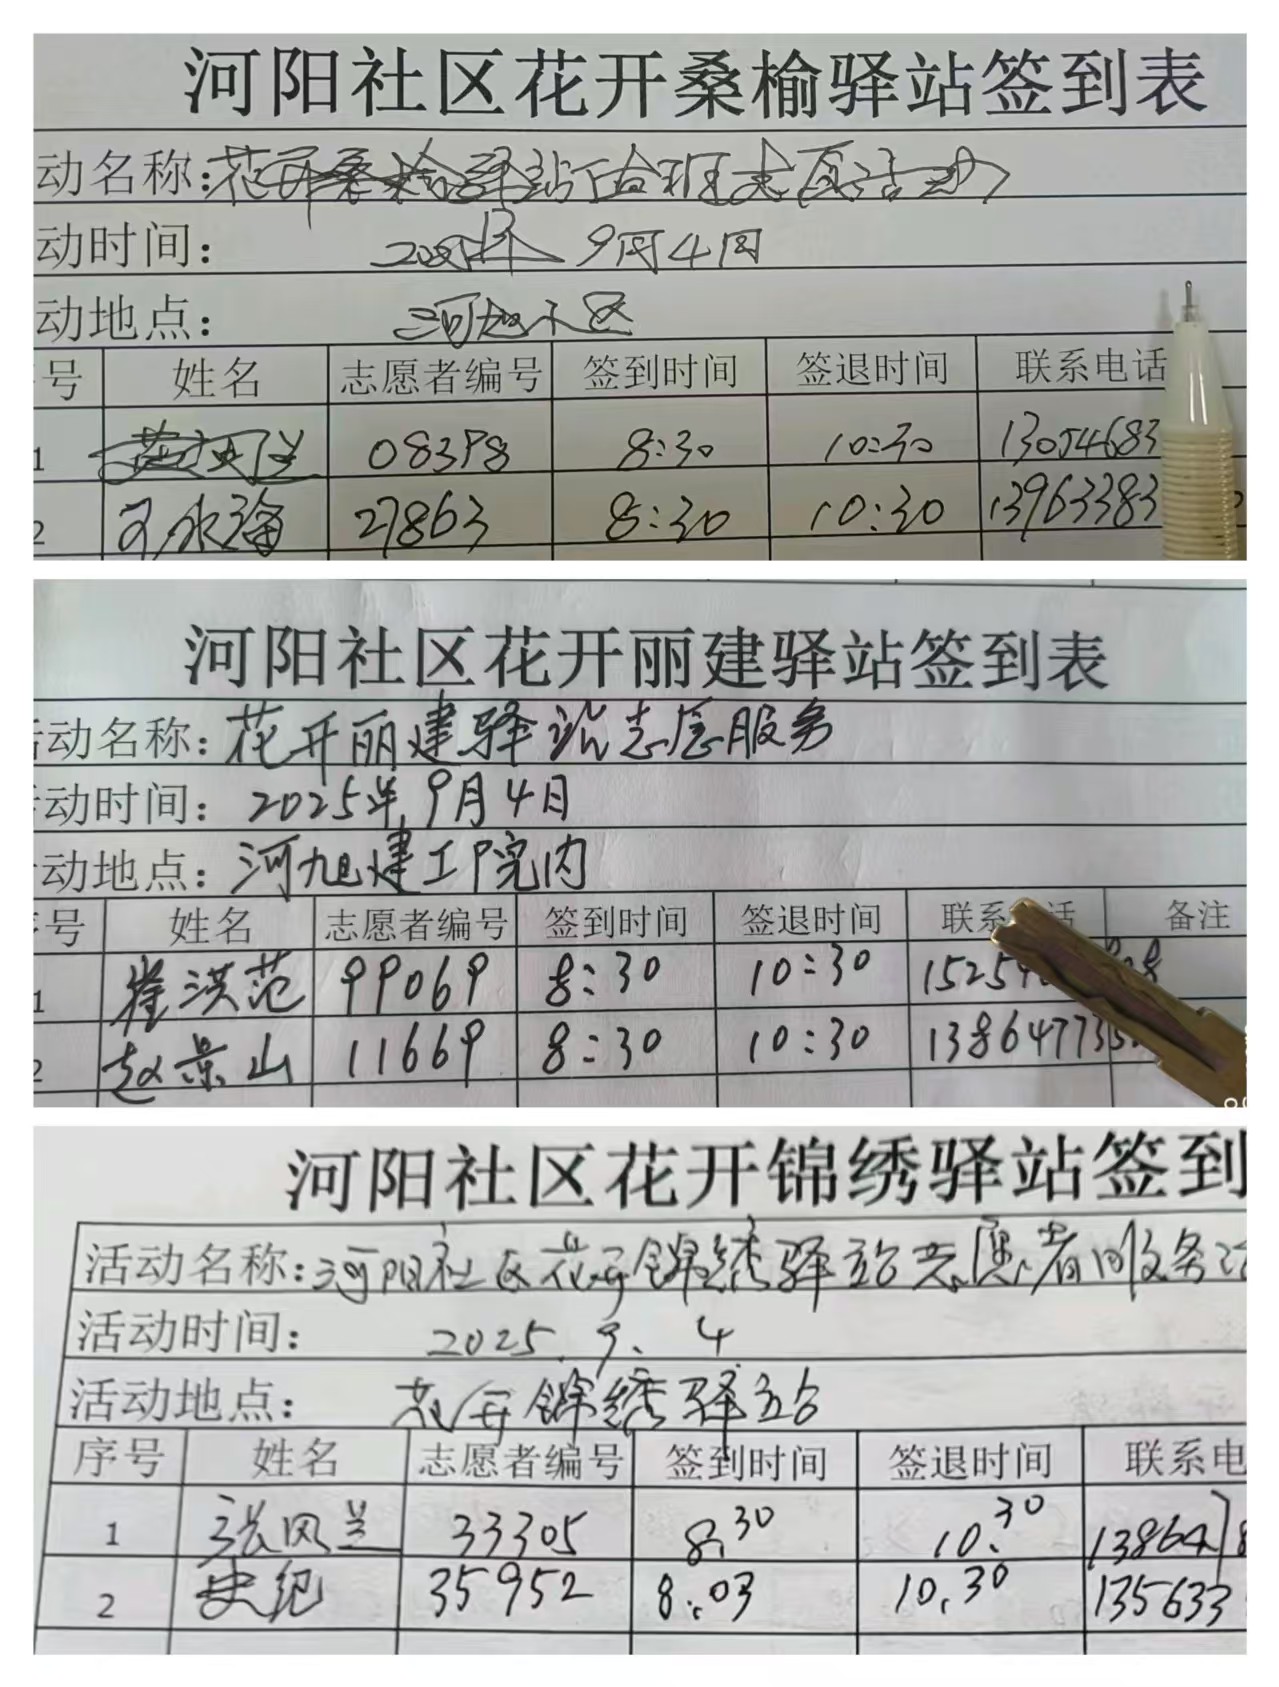 河阳社区花开桑榆驿站签到表
动名称:花开桑榆驿站值班志愿活动
动时间: 2025年 9月4日
动地点: 河旭小区
号 姓名 志愿者编号 签到时间 签退时间 联系电话
1 兰 08378 8:30 10:30 13054683
2 永海 27863 8:30 10:30 13963383
河阳社区花开丽建驿站签到表
活动名称: 花开丽建驿站志愿服务
动时间: 2025年9月4日
动地点: 河旭建工院内
序号 姓名 志愿者编号 签到时间 签退时间 联系 话 备注
1 崔洪范 99069 8:30 10:30 15254
2 赵景山 11669 8:30 10:30 138647735
河阳社区花开锦绣驿站签到
活动名称: 河阳社区花开锦绣驿站志愿者服务活
活动时间: 2025.9.4
活动地点: 花开锦绣驿站
序号 姓名 志愿者编号 签到时间 签退时间 联系电
1 张凤兰 33305 8.30 10.30 13864
2 史纪 35952 8:03 10.30 135633